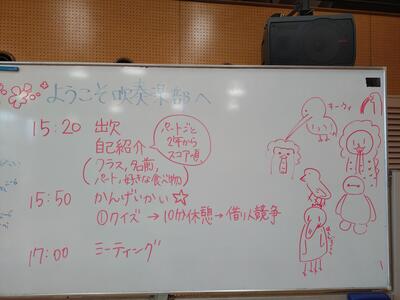 ようこそ吹奏楽部へ
15:20 出欠
自己紹介
(クラス,名前,
パート,好きな食べ物)
パートごと
2年から
スコア順
15:50 かんげいかい☆
①クイズ→10分休憩→借り人競争
17:00 ミーティング
キーウィ